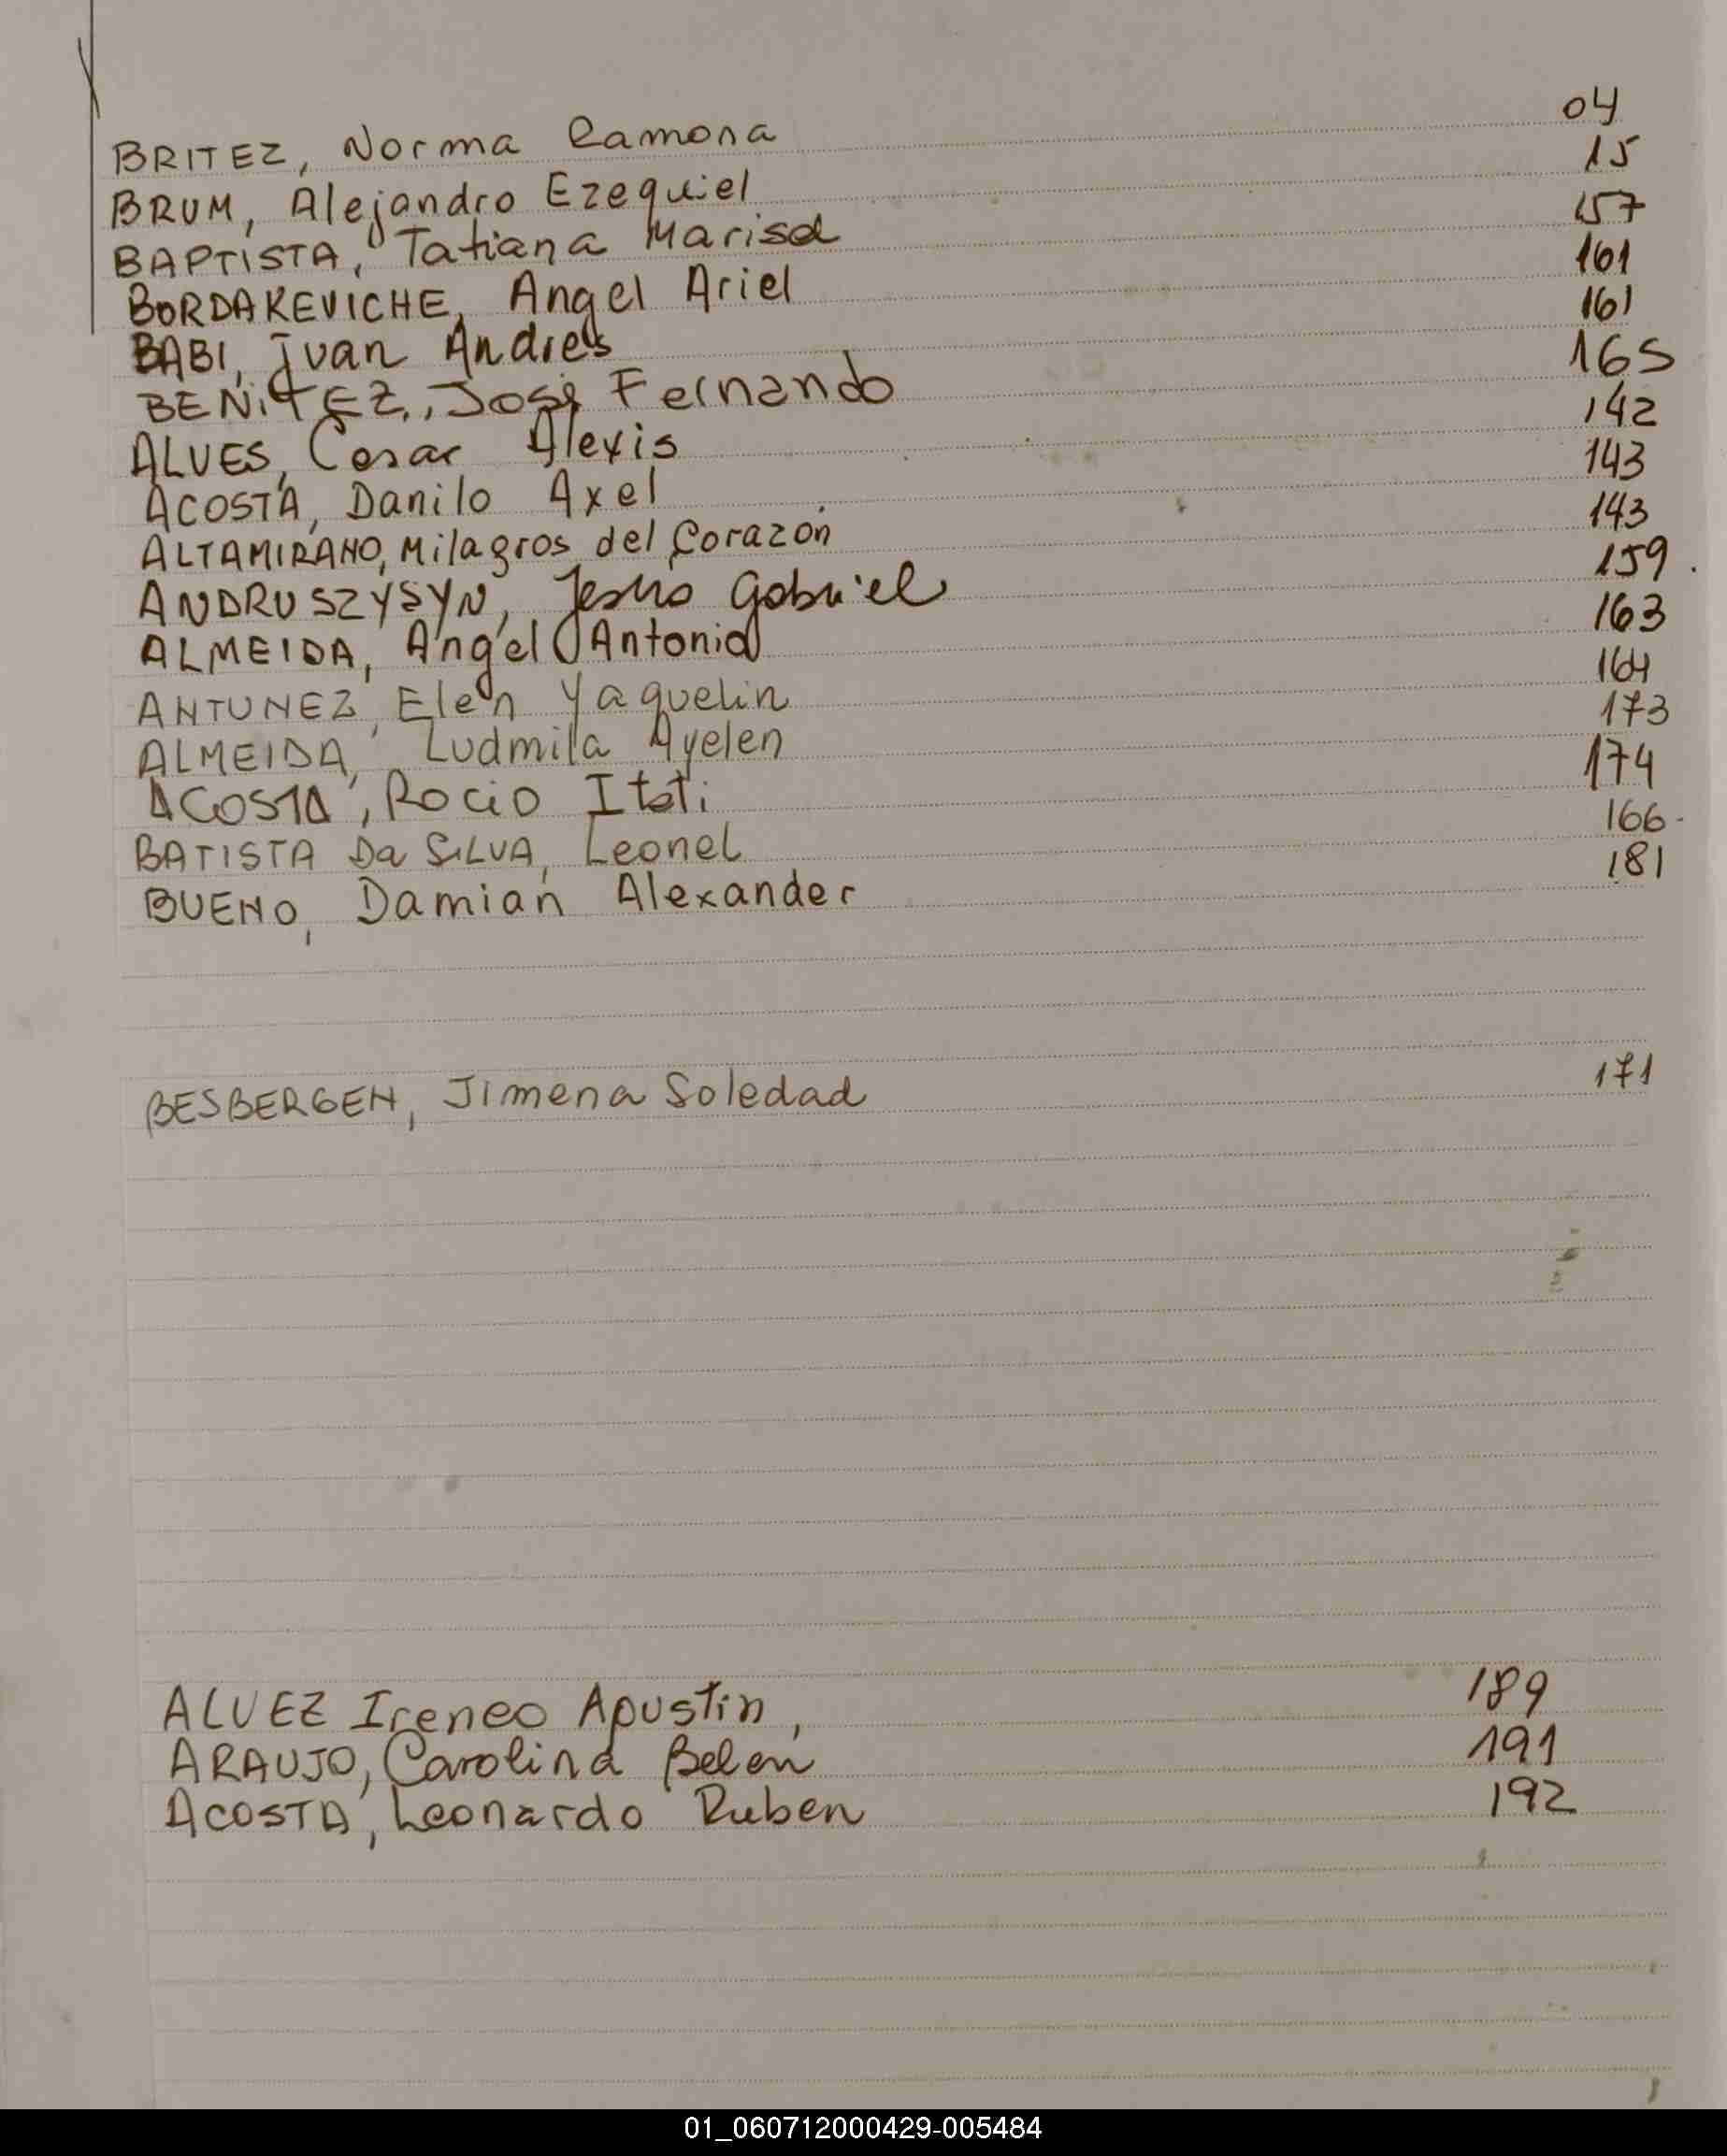 BRITEZ, Norma Ramona 04
BRUM, Alejandro Ezequiel 15
BAPTISTA, Tatiana Marisol 157
BORDAKEVICHE, Angel Ariel 161
BABI, Ivan Andres 161
BENITEZ, José Fernando 165
ALVES, Cesar Alexis 142
ACOSTA, Danilo Axel 143
ALTAMIRANO, Milagros del Corazón 143
ANDRUSZYSYN, Jesus Gabriel 159.
ALMEIDA, Angel Antonio 163
ANTUNEZ, Elen Yaquelin 164
ALMEIDA, Ludmila Ayelen 173
ACOSTA, Rocio Itati 174
BATISTA Da SILVA, Leonel 166-
BUENO, Damian Alexander 181
BESBERGEN, Jimena Soledad 171
ALVEZ Ireneo Agustin, 189
ARAUJO, Carolina Belen 191
ACOSTA, Leonardo Ruben 192
01_060712000429-005484